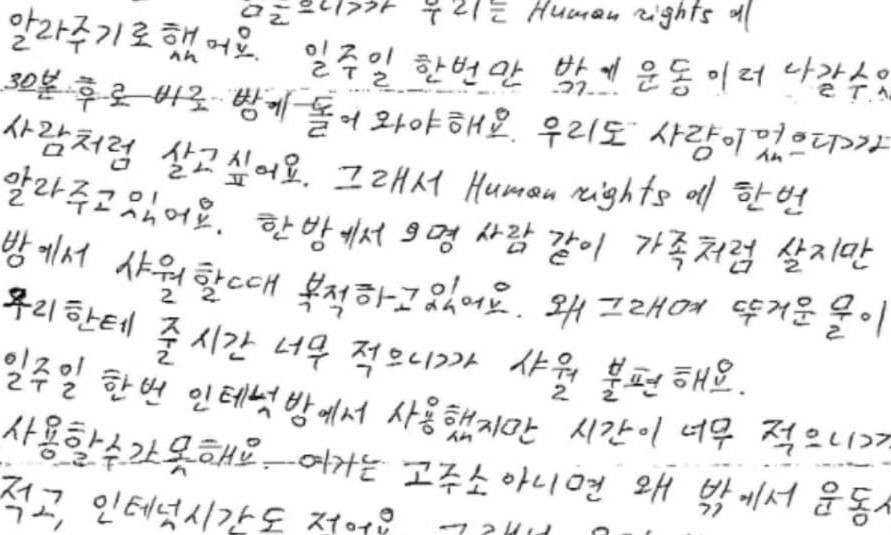 힘들으니까 우리는 Human rights에
알라주기로했어요. 일주일 한번만 밖에 운동이러 나갈수있
30분 후로 바로 방에 돌어와야해요. 우리도 사람이었으니까
사람처럼 살고싶어요. 그래서 Human rights에 한번
알라주고있어요. 한방에서 9명 사람 같이 가족처럼 살지만
방에서 샤월할때 복적하고있어요. 왜그래며 뚜거운물이
우리한테 줄시간 너무 적으니까 샤월 불편해요.
일주일 한번 인테넛방에서 사용했지만 시간이 너무 적으니까
사용할수가못해요. 여기는 고주소아니면 왜 밖에서 운동시
적고, 인테넛시간도 적어요. 그래서